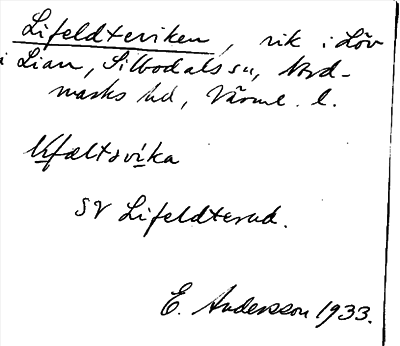 Lifeldteviken, vik i Löv
i Lian, Silbodals sn, Nord-
marks hd, Värml. l.
lifæltsvika
SV Lifeldterud.
E. Andersson 1933.